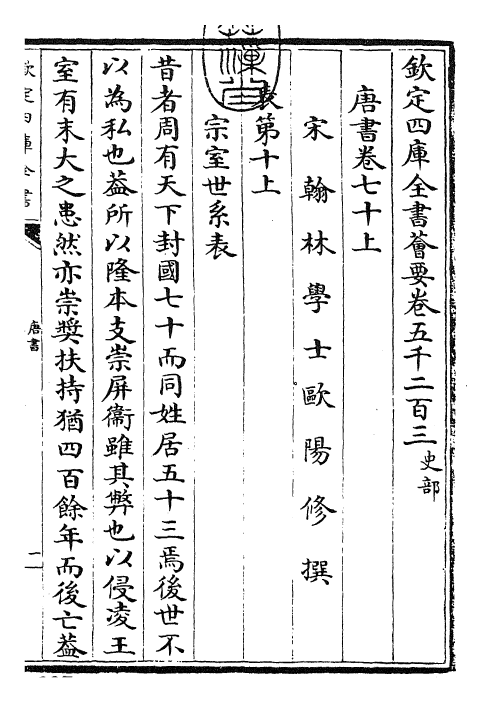 欽定四庫全書薈要卷五千二百三史部
唐書卷七十上
宋翰林學士歐陽修撰
表第十上
宗室世系表
昔者周有天下封國七十而同姓居五十三焉後世不
以為私也葢所以隆本支崇屏衛雖其弊也以侵凌王
室有末大之患然亦崇奬扶持猶四百餘年而後亡葢
欽定四庫全書
唐書